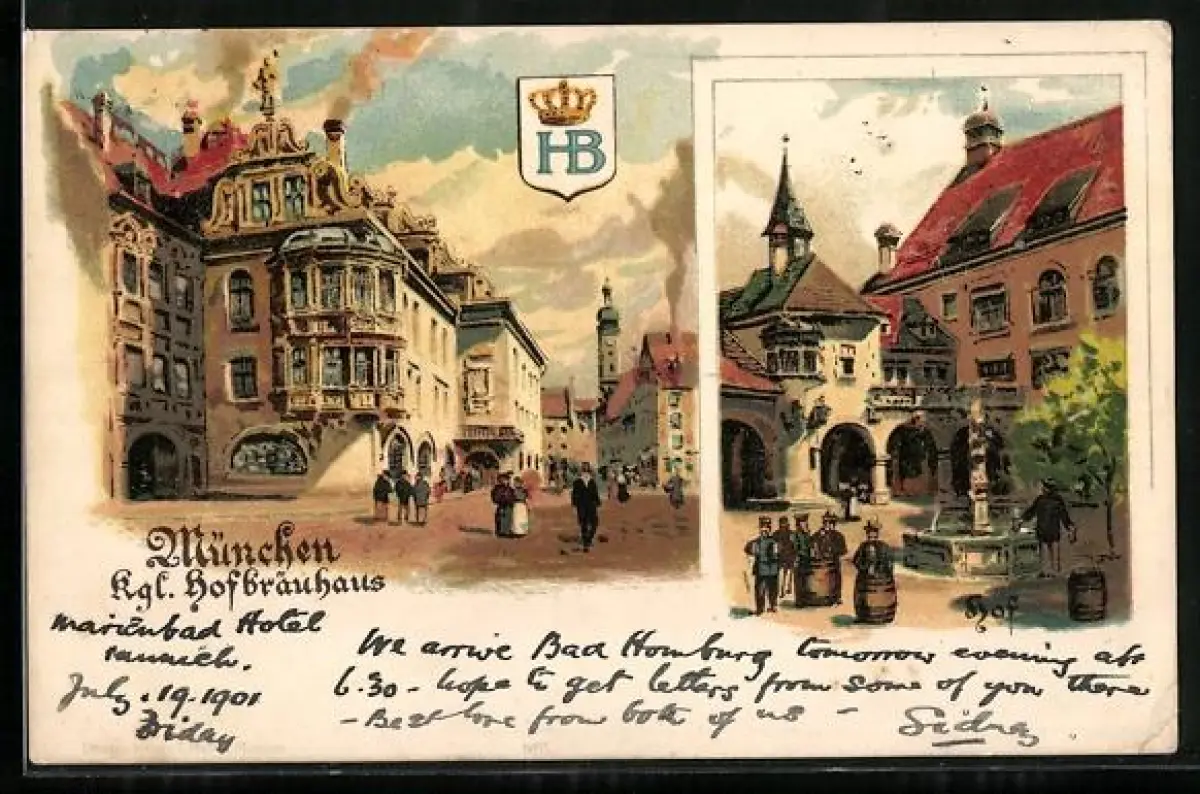 HB
München
Kgl. Hofbräuhaus
Hof
Marienbad Hotel
Munich.
July. 19. 1901
Friday
We arrive Bad Homburg tomorrow evening abt
6.30 - hope to get letters from some of you there
- Best love from both of us - Sidney